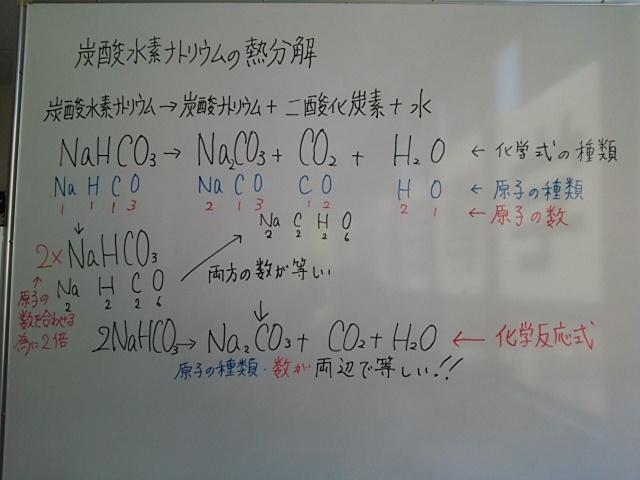 炭酸水素ナトリウムの熱分解
炭酸水素ナトリウム→炭酸ナトリウム+二酸化炭素+水
NaHCO₃→Na₂CO₃+CO₂+H₂O ←化学式の種類
Na H C O Na C O C O H O ←原子の種類
1 1 1 3 2 1 3 1 2 2 1 ←原子の数
↓
2×NaHCO₃
Na C H O
2 2 2 6
Na H C O
2 2 2 6
両方の数が等しい
↑
原子の
数を合わせる
為に2倍
↓
2NaHCO₃→Na₂CO₃+CO₂+H₂O ←化学反応式
原子の種類・数が両辺で等しい!!